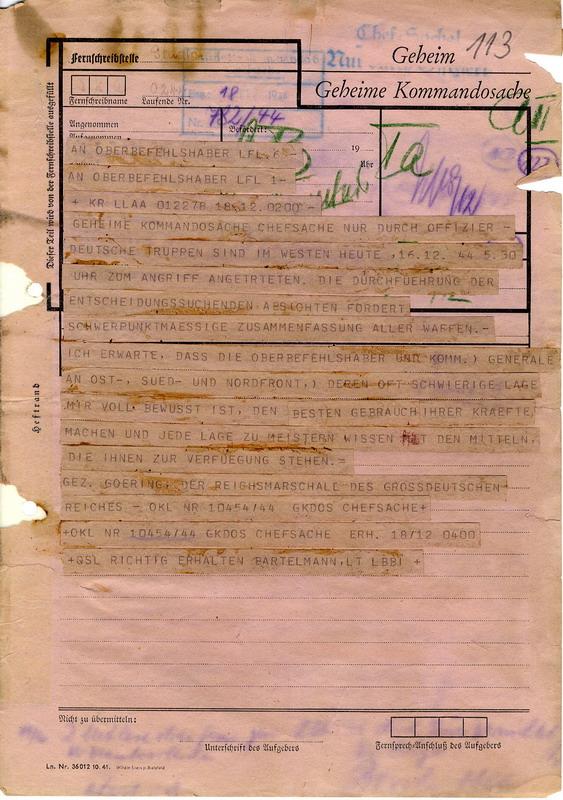 Geheim
113
Geheime Kommandosache
Fernschreibstelle
Fernschreibname Laufende Nr.
18
182/44
Angenommen
Aufgenommen
Befördert:
19
Uhr
Ia
Dieser Teil wird von der Fernschreibstelle ausgefüllt
AN OBERBEFEHLSHABER LFL 6 -
AN OBERBEFEHLSHABER LFL 1-
+ KR LLAA 012278 18.12.0200 -
GEHEIME KOMMANDOSACHE CHEFSACHE NUR DURCH OFFIZIER -
DEUTSCHE TRUPPEN SIND IM WESTEN HEUTE ,16.12. 44 5.30
UHR ZUM ANGRIFF ANGETRETEN. DIE DURCHFUEHRUNG DER
ENTSCHEIDUNGSSUCHENDEN ABSICHTEN FORDERT
SCHWERPUNKTMAESSIGE ZUSAMMENFASSUNG ALLER WAFFEN.-
ICH ERWARTE, DASS DIE OBERBEFEHLSHABER UND KOMM.) GENERALE
AN OST-, SUED- UND NORDFRONT,) DEREN OFT SCHWIERIGE LAGE
MIR VOLL BEWUSST IST, DEN BESTEN GEBRAUCH IHRER KRAEFTE,
MACHEN UND JEDE LAGE ZU MEISTERN WISSEN MIT DEN MITTELN,
DIE IHNEN ZUR VERFUEGUNG STEHEN.=
GEZ. GOERING, DER REICHSMARSCHALL DES GROSSDEUTSCHEN
REICHES - OKL NR 10454/44 GKDOS CHEFSACHE+
+OKL NR 10454/44 GKDOS CHEFSACHE ERH. 18/12 0400
+QSL RICHTIG ERHALTEN BARTELMANN,LT LBBI +
Heftrand
Nicht zu übermitteln:
Unterschrift des Aufgebers
Fernsprech-Anschluß des Aufgebers
Ln. Nr. 36012 10. 41.